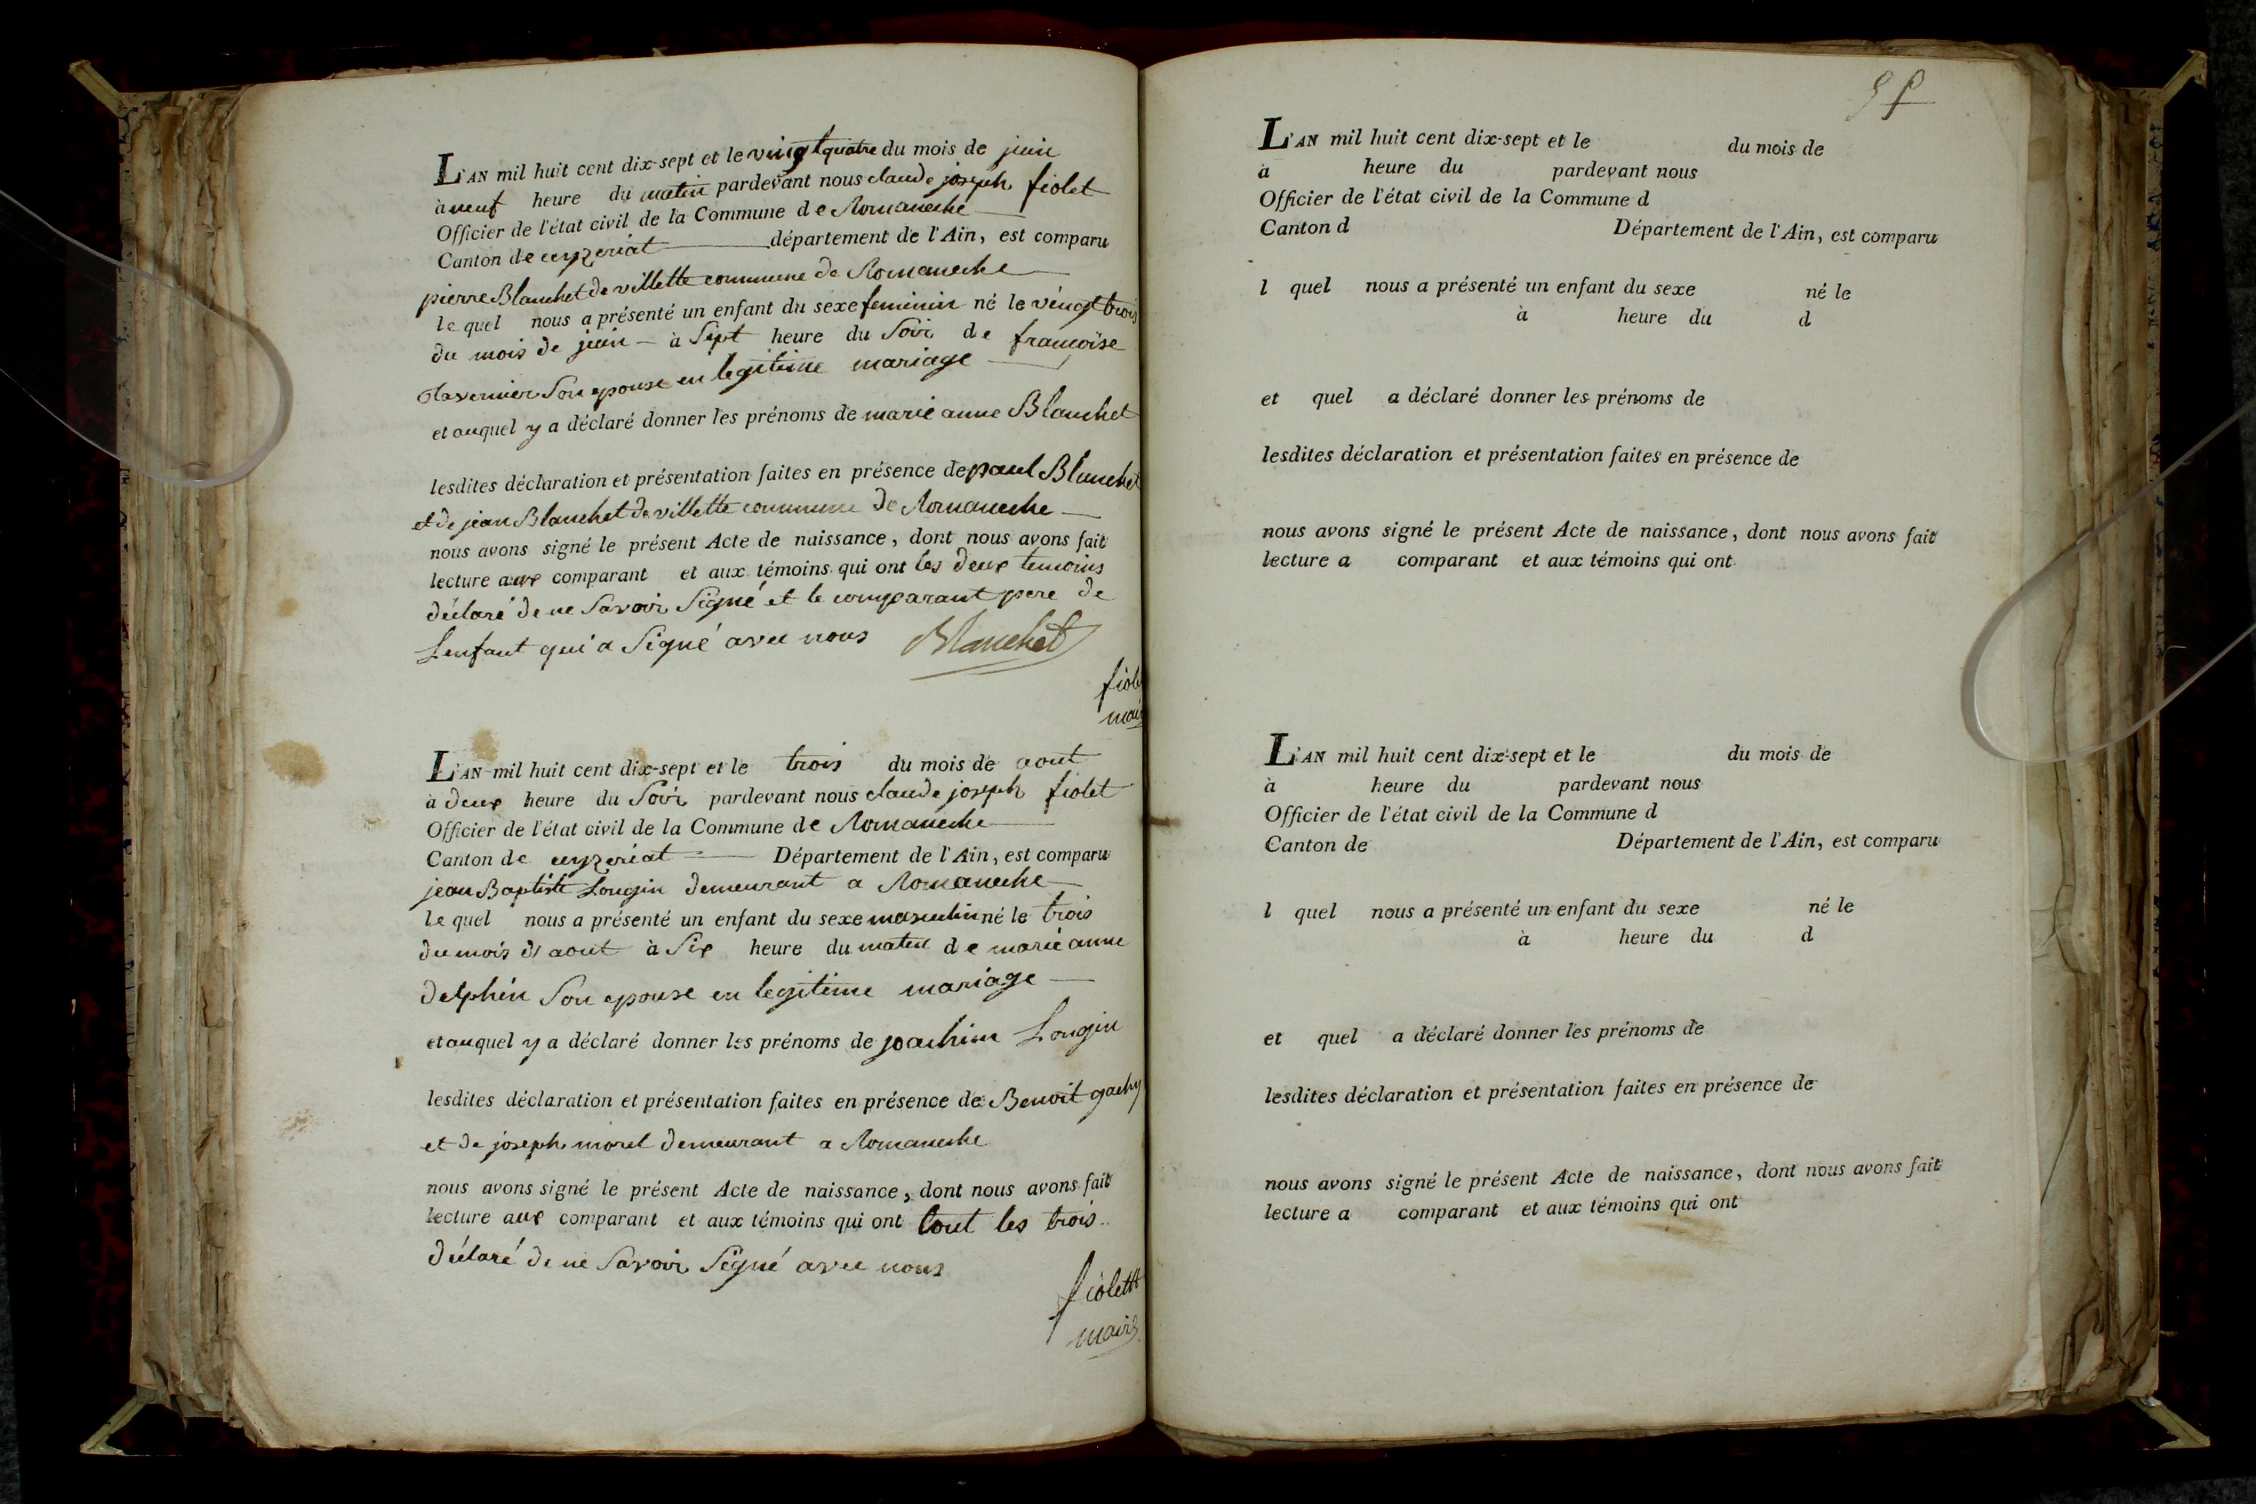 L'AN mil huit cent dix-sept et le vingt quatre du mois de juin
à neuf heure du matin pardevant nous claude joseph fiolet
Officier de l'état civil de la Commune de Romaneche
Canton de ceyzeriat département de l'Ain, est comparu
pierre Blanchet de villette commune de Romaneche
le quel nous a présenté un enfant du sexe feminin né le vingt trois
du mois de juin à Sept heure du Soir de francoise
tavernier Son epouse en legitime mariage
et auquel y a déclaré donner les prénoms de marie anne Blanchet
lesdites déclaration et présentation faites en présence de paul Blanchet
et de jean Blanchet de villette commune de Romaneche
nous avons signé le présent Acte de naissance, dont nous avons fait
lecture aux comparant et aux témoins qui ont les deux temoins
déclaré de ne Savoir Signé et le comparant pere de
Lenfant qui a Signé avec nous Blanchet
fiolet
maire
L'AN mil huit cent dix-sept et le trois du mois de aout
à deux heure du Soir pardevant nous claude joseph fiolet
Officier de l'état civil de la Commune de Romaneche
Canton de ceyzeriat Département de l'Ain, est comparu
jean Baptiste Longin demeurant a Romaneche
le quel nous a présenté un enfant du sexe masculin né le trois
du mois d'aout à Six heure du matin de marie anne
delphin Son epouse en legitime mariage
et auquel y a déclaré donner les prénoms de joachim Longin
lesdites déclaration et présentation faites en présence de Benoit gachy
et de joseph morel demeurant a Romaneche
nous avons signé le présent Acte de naissance, dont nous avons fait
lecture aux comparant et aux témoins qui ont tout les trois
déclaré de ne Savoir Signé avec nous
fiolet
maire
L'AN mil huit cent dix-sept et le du mois de
à heure du pardevant nous
Officier de l'état civil de la Commune d
Canton d Département de l'Ain, est comparu
l quel nous a présenté un enfant du sexe né le
à heure du d
et quel a déclaré donner les prénoms de
lesdites déclaration et présentation faites en présence de
nous avons signé le présent Acte de naissance, dont nous avons fait
lecture a comparant et aux témoins qui ont
L'AN mil huit cent dix-sept et le du mois de
à heure du pardevant nous
Officier de l'état civil de la Commune d
Canton de Département de l'Ain, est comparu
l quel nous a présenté un enfant du sexe né le
à heure du d
et quel a déclaré donner les prénoms de
lesdites déclaration et présentation faites en présence de
nous avons signé le présent Acte de naissance, dont nous avons fait
lecture a comparant et aux témoins qui ont